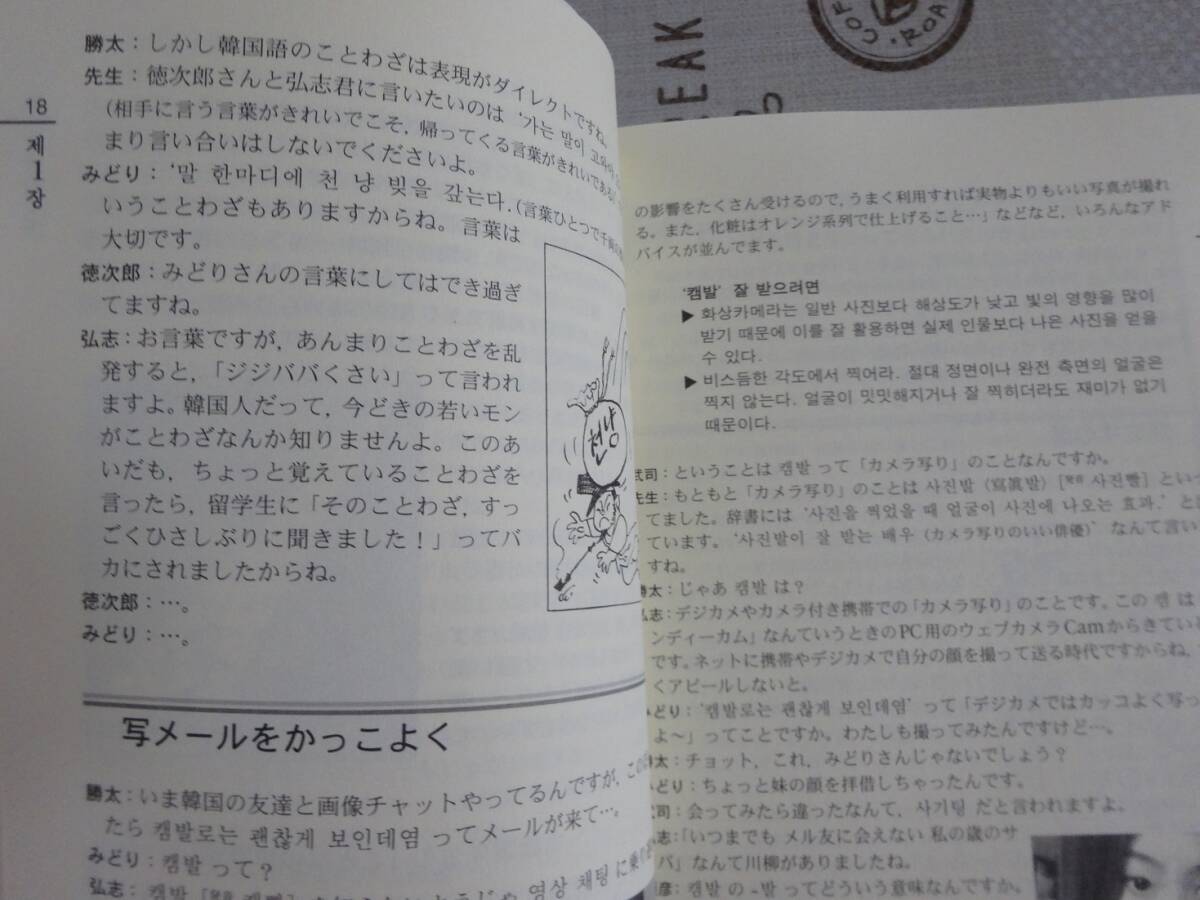 18
제
1
장
勝太：しかし韓国語のことわざは表現がダイレクトですね。
先生：徳次郎さんと弘志君に言いたいのは '가는 말이 고와야
(相手に言う言葉がきれいでこそ，帰ってくる言葉がきれいである
まり言い合いはしないでくださいよ。
みどり：'말 한마디에 천 냥 빚을 갚는다. (言葉ひとつで千両の
いうことわざもありますからね。言葉は
大切です。
徳次郎：みどりさんの言葉にしてはでき過ぎ
てますね。
弘志：お言葉ですが，あんまりことわざを乱
発すると，「ジジババくさい」って言われ
ますよ。韓国人だって，今どきの若いモン
がことわざなんか知りませんよ。このあ
いだも，ちょっと覚えていることわざを
言ったら，留学生に「そのことわざ，すっ
ごくひさしぶりに聞きました！」ってバ
カにされましたからね。
徳次郎：…。
みどり：…。
천냥
写メールをかっこよく
勝太：いま韓国の友達と画像チャットやってるんですが，この
たら 캠발로는 괜찮게 보인데염 ってメールが来て…。
みどり：캠발 って？
弘志：캠발
영상 채팅 に
EAK
COF
ROA
の影響をたくさん受けるので，うまく利用すれば実物よりもいい写真が撮れ
る。また，化粧はオレンジ系列で仕上げること…」などなど，いろんなアド
バイスが並んでます。
'캠발' 잘 받으려면
▶ 화상카메라는 일반 사진보다 해상도가 낮고 빛의 영향을 많이
받기 때문에 이를 잘 활용하면 실제 인물보다 나은 사진을 얻을
수 있다.
▶ 비스듬한 각도에서 찍어라. 절대 정면이나 완전 측면의 얼굴은
찍지 않는다. 얼굴이 밋밋해지거나 잘 찍히더라도 재미가 없기
때문이다.
武司：ということは 캠발 って「カメラ写り」のことなんですか。
先生：もともと「カメラ写り」のことは 사진발 (寫眞발) [発音 사진빨] といっ
てました。辞書には '사진을 찍었을 때 얼굴이 사진에 나오는 효과.' と
ています。'사진발이 잘 받는 배우 (カメラ写りのいい俳優)' なんて言い
すね。
勝太：じゃあ 캠발 は？
弘志：デジカメやカメラ付き携帯での「カメラ写り」のことです。この 캠 は
ンディーカム」なんていうときのPC用のウェブカメラCamからきてい
です。ネットに携帯やデジカメで自分の顔を撮って送る時代ですからね，
くアピールしないと。
みどり：'캠발로는 괜찮게 보인데염' って「デジカメではカッコよく写っ
よ〜」ってことですか。わたしも撮ってみたんですけど…。
勝太：チョット，これ，みどりさんじゃないでしょう？
みどり：ちょっと妹の顔を拝借しちゃったんです。
武司：会ってみたら違ったなんて，사기팅 だと言われますよ。
志：「いつまでも メル友に会えない 私の歳のサ
バ」なんて川柳がありましたね。
彦：캠발 の -발 ってどういう意味なんですか。